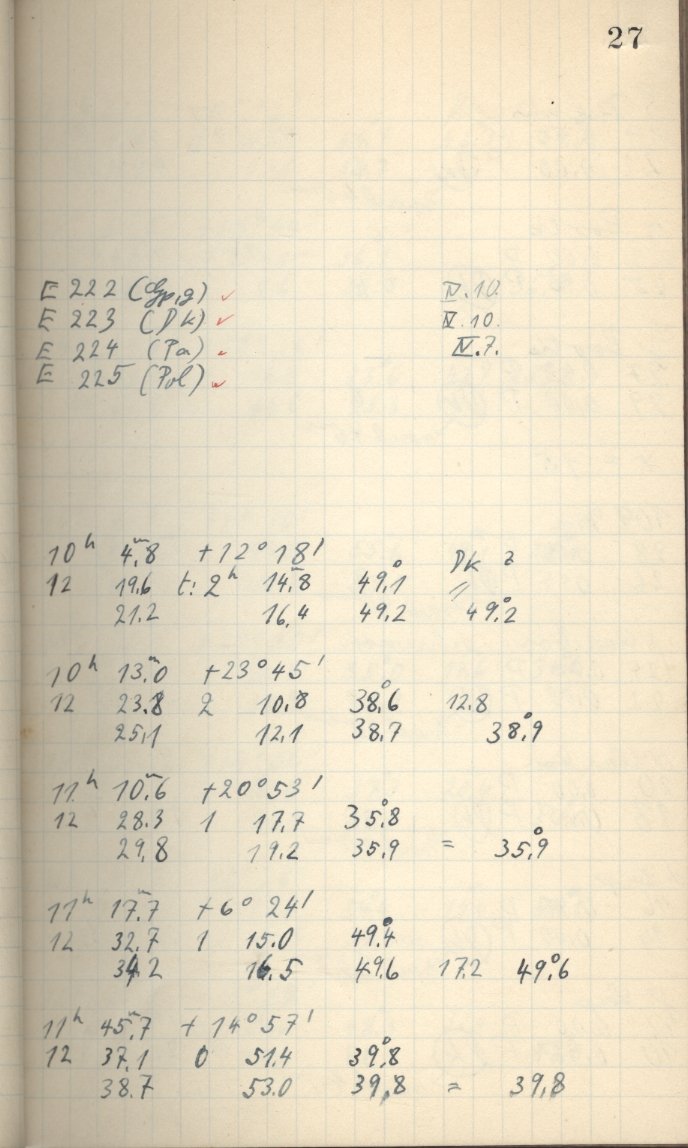 27
E 222 (Gp,g) IV.10.
E 223 (Dk) V.10.
E 224 (Pa) IV.7.
E 225 (Pol)
10ʰ 4ᵐ.8 +12° 18'
12 19.6 t: 2ʰ 14ᵐ.8 49°.1 Dk
21.2 16.4 49.2 49°.2
10ʰ 13ᵐ.0 +23° 45'
12 23.8 2 10.8 38°.6 12.8
25.1 12.1 38.7 38°.9
11ʰ 10ᵐ.6 +20° 53'
12 28.3 1 17.7 35°.8
29.8 19.2 35.9 = 35°.9
11ʰ 17ᵐ.7 +6° 24'
12 32.7 1 15.0 49°.4
34.2 16.5 49.6 17.2 49°.6
11ʰ 45ᵐ.7 +14° 57'
12 37.1 0 51.4 39°.8
38.7 53.0 39.8 = 39.8